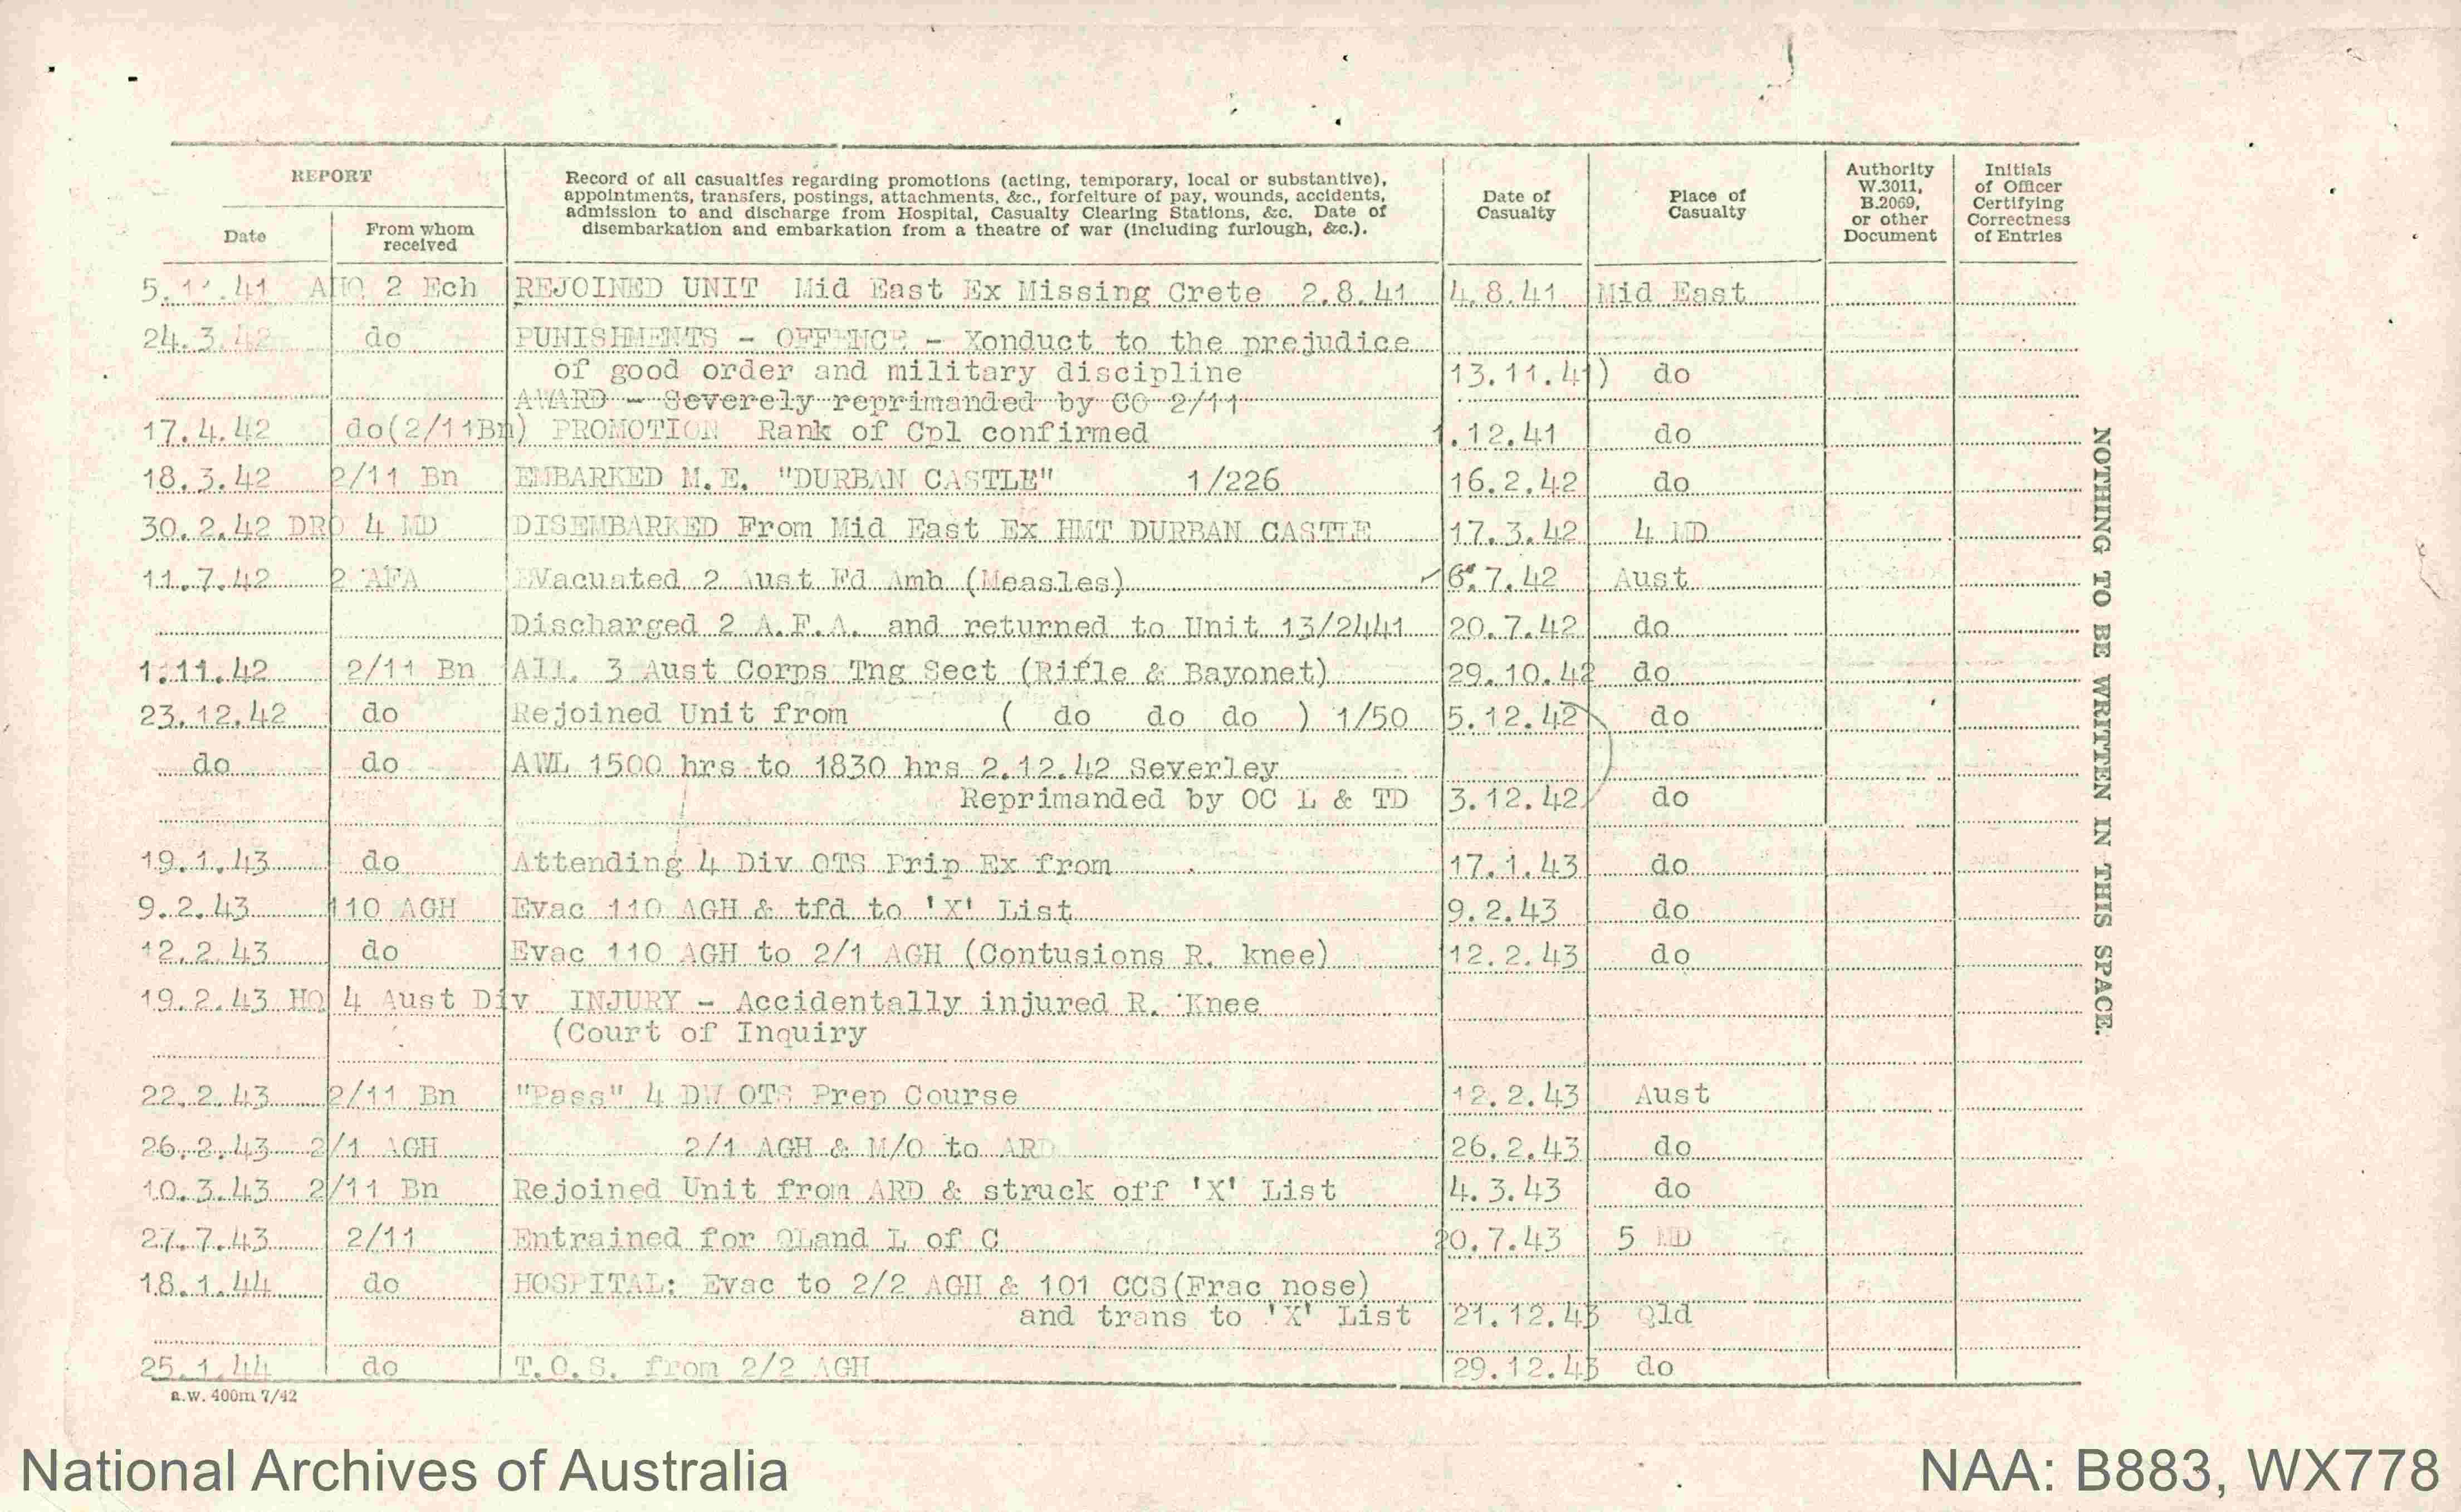 REPORT
Date
From whom received
Record of all casualties regarding promotions (acting, temporary, local or substantive), appointments, transfers, postings, attachments, &c., forfeiture of pay, wounds, accidents, admission to and discharge from Hospital, Casualty Clearing Stations, &c. Date of disembarkation and embarkation from a theatre of war (including furlough, &c.).
Date of Casualty
Place of Casualty
Authority W.3011, B.2069, or other Document
Initials of Officer Certifying Correctness of Entries
5.11.41 AHQ 2 Ech REJOINED UNIT Mid East Ex Missing Crete 2.8.41 4.8.41 Mid East
24.3.42 do PUNISHMENTS - OFFENCE - Xonduct to the prejudice
of good order and military discipline 13.11.41) do
AWARD - Severely reprimanded by CO 2/11
17.4.42 do(2/11Bn) PROMOTION Rank of Cpl confirmed 1.12.41 do
18.3.42 2/11 Bn EMBARKED M.E. "DURBAN CASTLE" 1/226 16.2.42 do
30.2.42 DRO 4 MD DISEMBARKED From Mid East Ex HMT DURBAN CASTLE 17.3.42 4 MD
11.7.42 2 AFA EVacuated 2 Aust Fd Amb (Measles) 6.7.42 Aust
Discharged 2 A.F.A. and returned to Unit 13/2441 20.7.42 do
1.11.42 2/11 Bn All. 3 Aust Corps Tng Sect (Rifle & Bayonet) 29.10.42 do
23.12.42 do Rejoined Unit from ( do do do ) 1/50 5.12.42 do
do do AWL 1500 hrs to 1830 hrs 2.12.42 Severley
Reprimanded by OC L & TD 3.12.42 do
19.1.43 do Attending 4 Div OTS Prip Ex from 17.1.43 do
9.2.43 110 AGH Evac 110 AGH & tfd to 'X' List 9.2.43 do
12.2.43 do Evac 110 AGH to 2/1 AGH (Contusions R. knee) 12.2.43 do
19.2.43 HQ 4 Aust Div INJURY - Accidentally injured R. Knee
(Court of Inquiry
22.2.43 2/11 Bn "Pass" 4 DW OTS Prep Course 12.2.43 Aust
26.2.43 2/1 AGH 2/1 AGH & M/O to ARD 26.2.43 do
10.3.43 2/11 Bn Rejoined Unit from ARD & struck off 'X' List 4.3.43 do
27.7.43 2/11 Entrained for QLand L of C 20.7.43 5 MD
18.1.44 do HOSPITAL: Evac to 2/2 AGH & 101 CCS(Frac nose)
and trans to 'X' List 21.12.43 Qld
25.1.44 do T.O.S. from 2/2 AGH 29.12.43 do
a.w. 400m 7/42
NOTHING TO BE WRITTEN IN THIS SPACE.
National Archives of Australia
NAA: B883, WX778